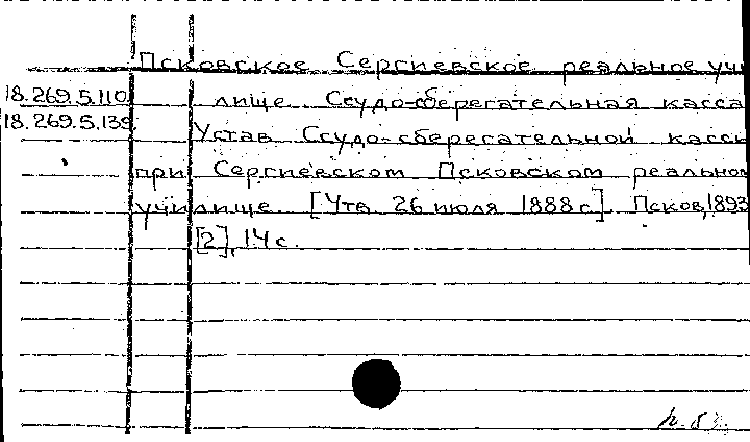 Псковское Сергиевское реальное учи
18.269.5.110 лище. Ссудо-сберегательная касса
18.269.5.139 Устав Ссудо-сберегательной кассы
при Сергиевском Псковском реальном
училище. [Утв. 26 июля 1888 г.]. Псков, 1893
[2], 14 с.